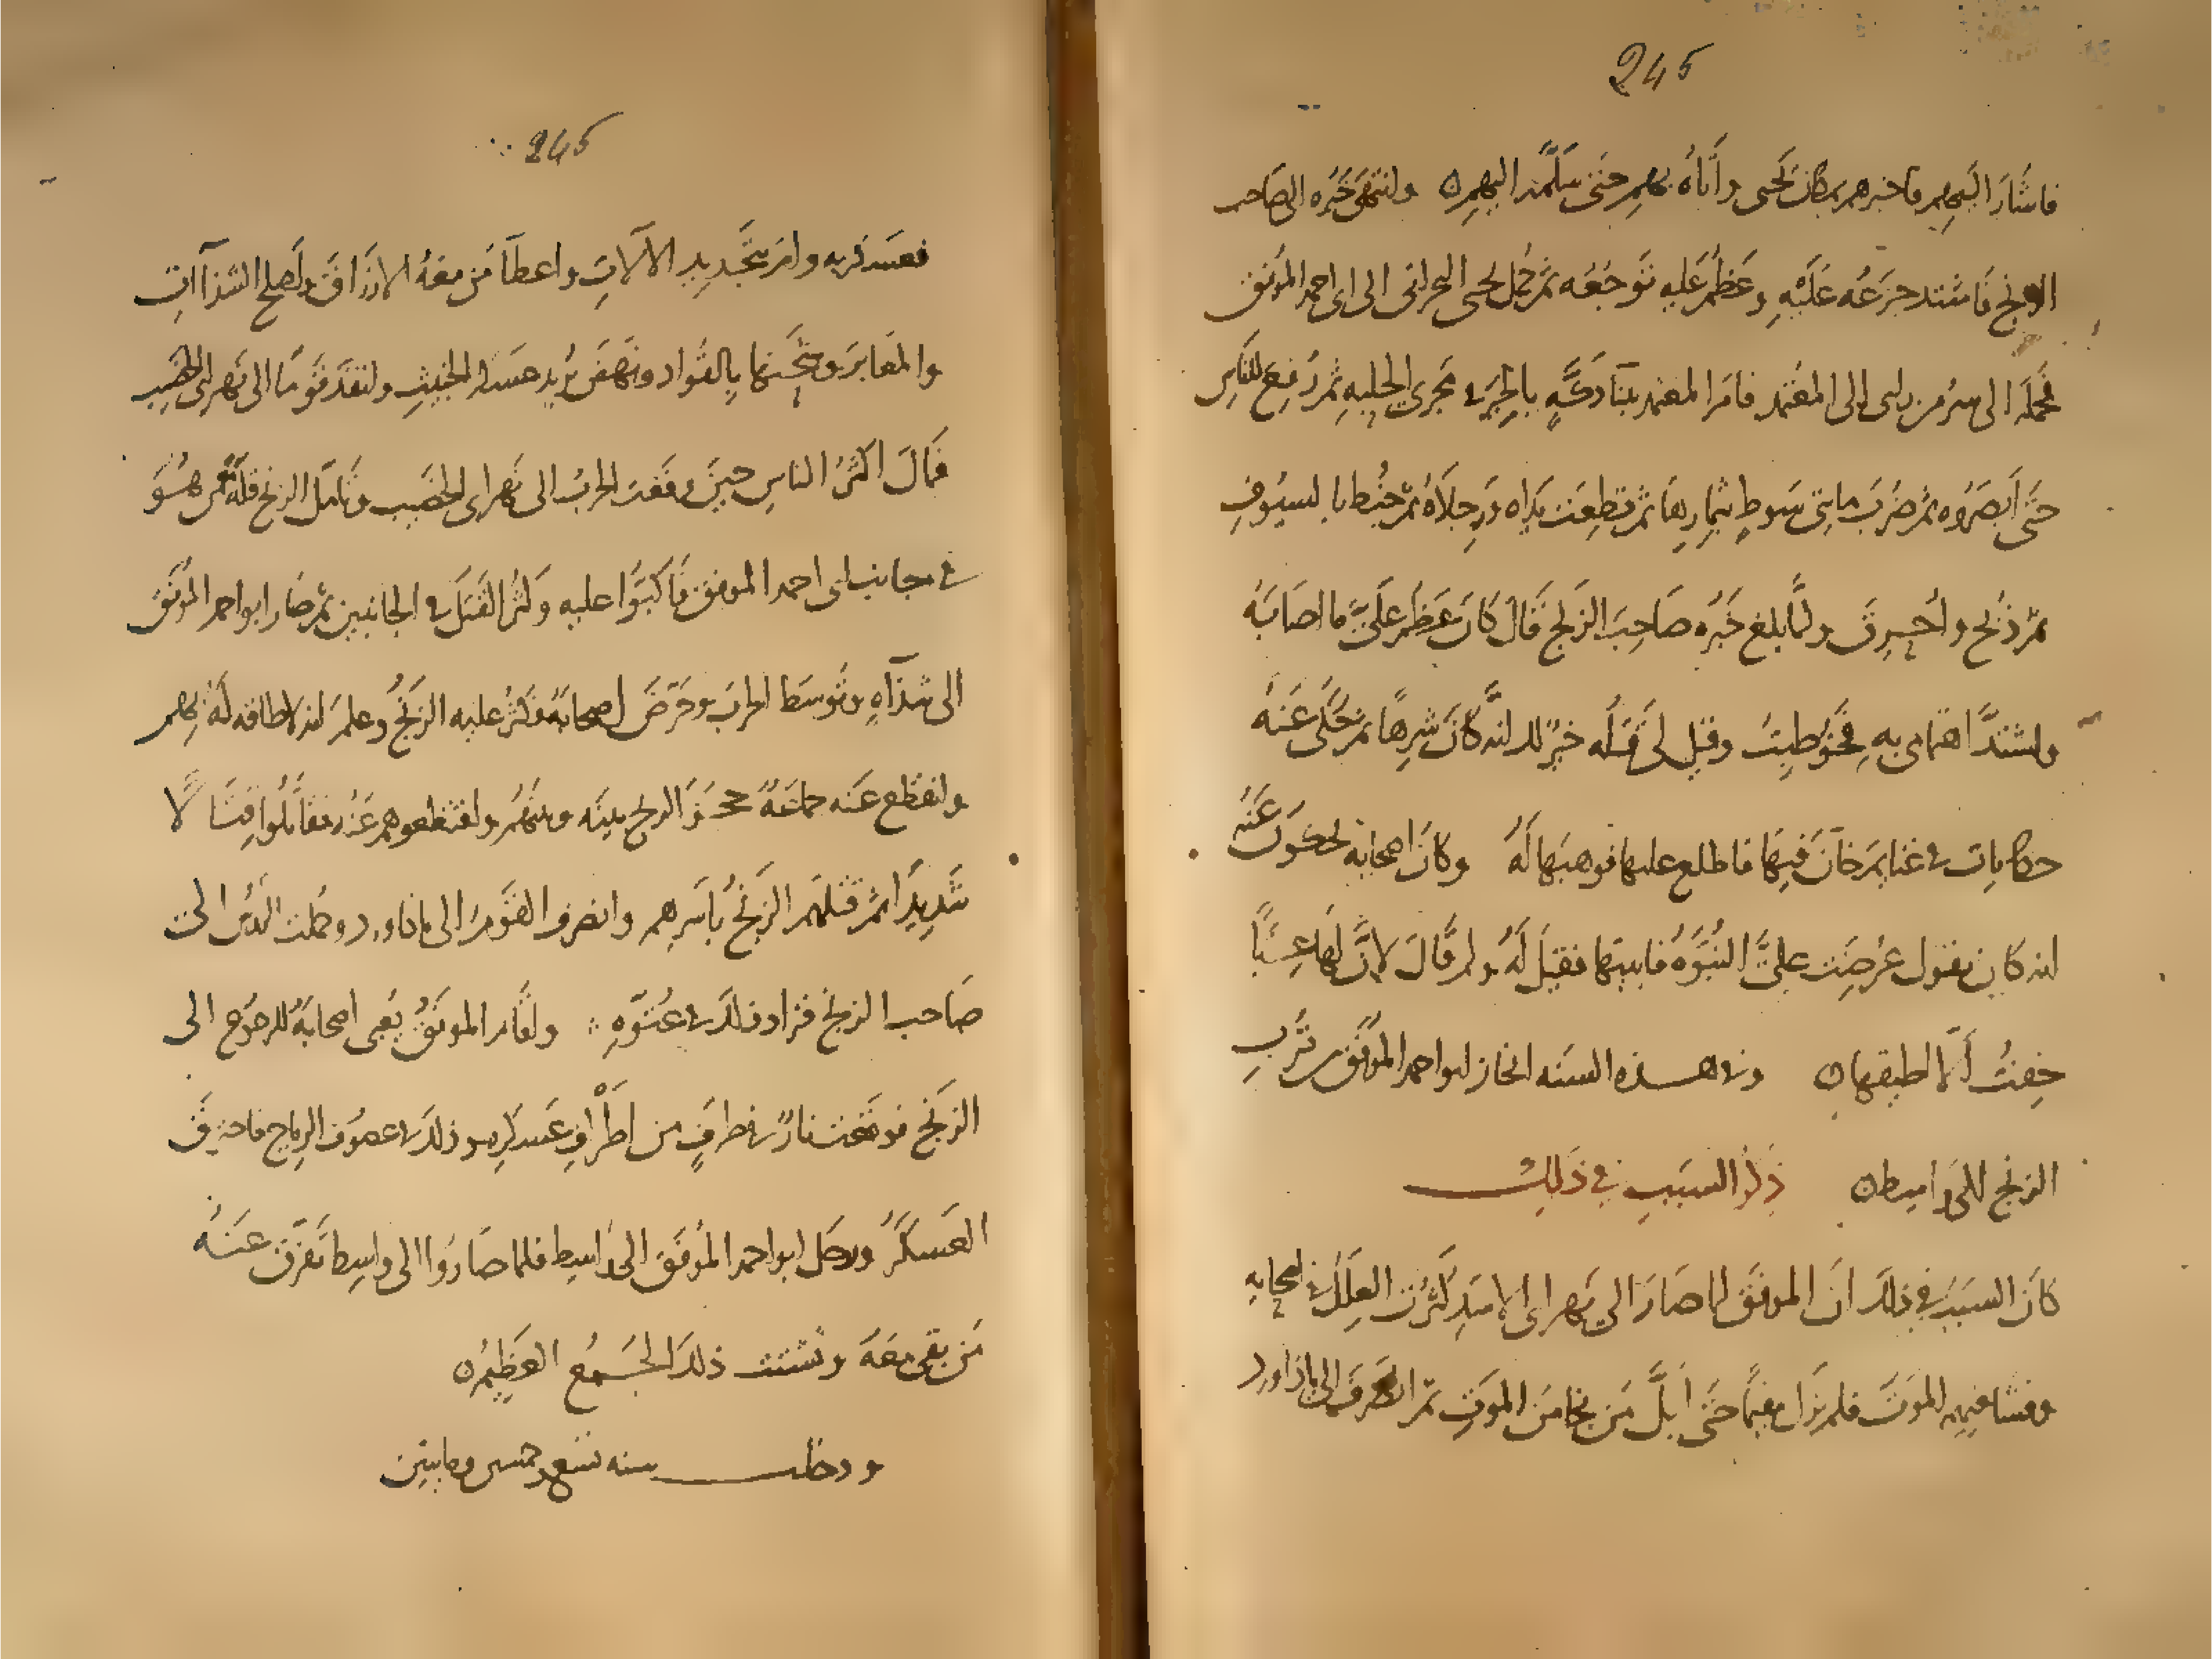 245
فاشَارَ اليهِم فاخبرهم بمكان يحيى وأتاهُ بهم حتى سلّمه اليهم ٥ وانتهى خَبَره الى صاحب
الزنج فاشتد جزعُه عَلَيْهِ وعَظُم عليه توجّعُه ثم حُمل يحيى البحرانى الى ابى احمد الموفّق
فحمله الى سُرّ من راى الى المعتمد فامر المعتمد ببنا دكّهٍ بالحَيْر فى مجرى الحلبهِ ثم رُفِعَ للناسِ
حتّى ابصَرُوه ثم ضُربَ مايتى سَوطٍ بثمارِها ثم قطِعَت يَداه وَرِجلاهُ ثم خُبط بالسيوفِ
ثم ذُبحَ واُحرِقَ ولمّا بلغ خَبَره صَاحِبَ الزنج قالَ كانَ عَظُمَ علىَّ ما اصَابَهُ
واشتدَّ اهتمامى به فخُوطبتُ وقيل لى قَتلُه خيرٌ لك انَّه كانَ شرِهًا ثم حُكى عنه
حكاياتٌ فى غنايم خانَ فيها فاطلع عليها فوهبَها لَهُ وكان اصحابه يحكون عَنهُ
انه كان يقول عُرِضَت علىَّ النُبُوّةُ فابيتها فقيلَ لَهُ ولم قالَ لانَّ لها عِبًا
خِفتُ ألّا اطيقها ٥ وفى هـذه السنه انحاز ابو احمد الموفّق من قُربِ
الزنج الى وَاسِط ٥ ذِكرُ السبَبِ فى ذَلِك
كانَ السبَبُ فى ذلك انَ الموفّقَ لما صَارَ الى نهر ابى الاسَدِ كثرت العِلَلُ فى اصحابه
وفشا فيهِم المَوتُ فلم يَزَل مقيمًا حتى أبلَّ مَن نجا مِنَ الموتِ ثم انصرفَ الى باذاورد
245
فعسكر به وامَر بتجَديدِ الآلاتِ واعطآ مَن معهُ الارزاقَ واصلح الشذآاتِ
والمعَابرَ وشحَنها بالقُوّادِ ونهَضَ يُريد عسكر الخبيثِ وانفذَ قومًا الى نهر ابى الخصيب
فمَالَ اكثرُ الناسِ حينَ وقعَت الحربُ الى نَهر ابى الخصَيب وتامّل الزنج قلّةَ من هُوَ
فى جانب ابى احمد الموفق فاكَبُّوا عليه وكثُر القَتلَ فى الجانبين ثم صَار ابو احمد الموفّق
الى شذآهِ وتوسّط الحربَ وحَرّضَ اصحابَهُ فكثُر عليه الزنجُ وعلمَ انه لا طاقه له بهم
وانقطع عنه جماعَةٌ حجزَ الزنج بينَه وبينهُم واقتطعوهم عَنه فقاتَلُوا قِتَالًا
شَديدًا ثم قتلَهم الزنجُ بأسرِهم وانصرف القومُ الى باذاورد وحُملت الرُؤسُ الى
صَاحب الزنج فزاد ذلكَ فى عُتوّهِ ∴ واقام الموفّقُ يُعبى اصحابَهُ للرجُوع الى
الزنج فوقعَت نارٌ فى طرفٍ من اطْرافِ عَسكرِه وذلك فى عصوفِ الرياح فاحترَقَ
العَسكَرُ ورحَل ابو احمد الموفّق الى وَاسِط فلما صَارُوا الى واسِط تفرّق عَنهُ
مَن بقى معَهُ وتشتت ذلكَ الجَـمعُ العَظِيمُ ٥
ودخلت سنه تسع وخمسين ومايتين